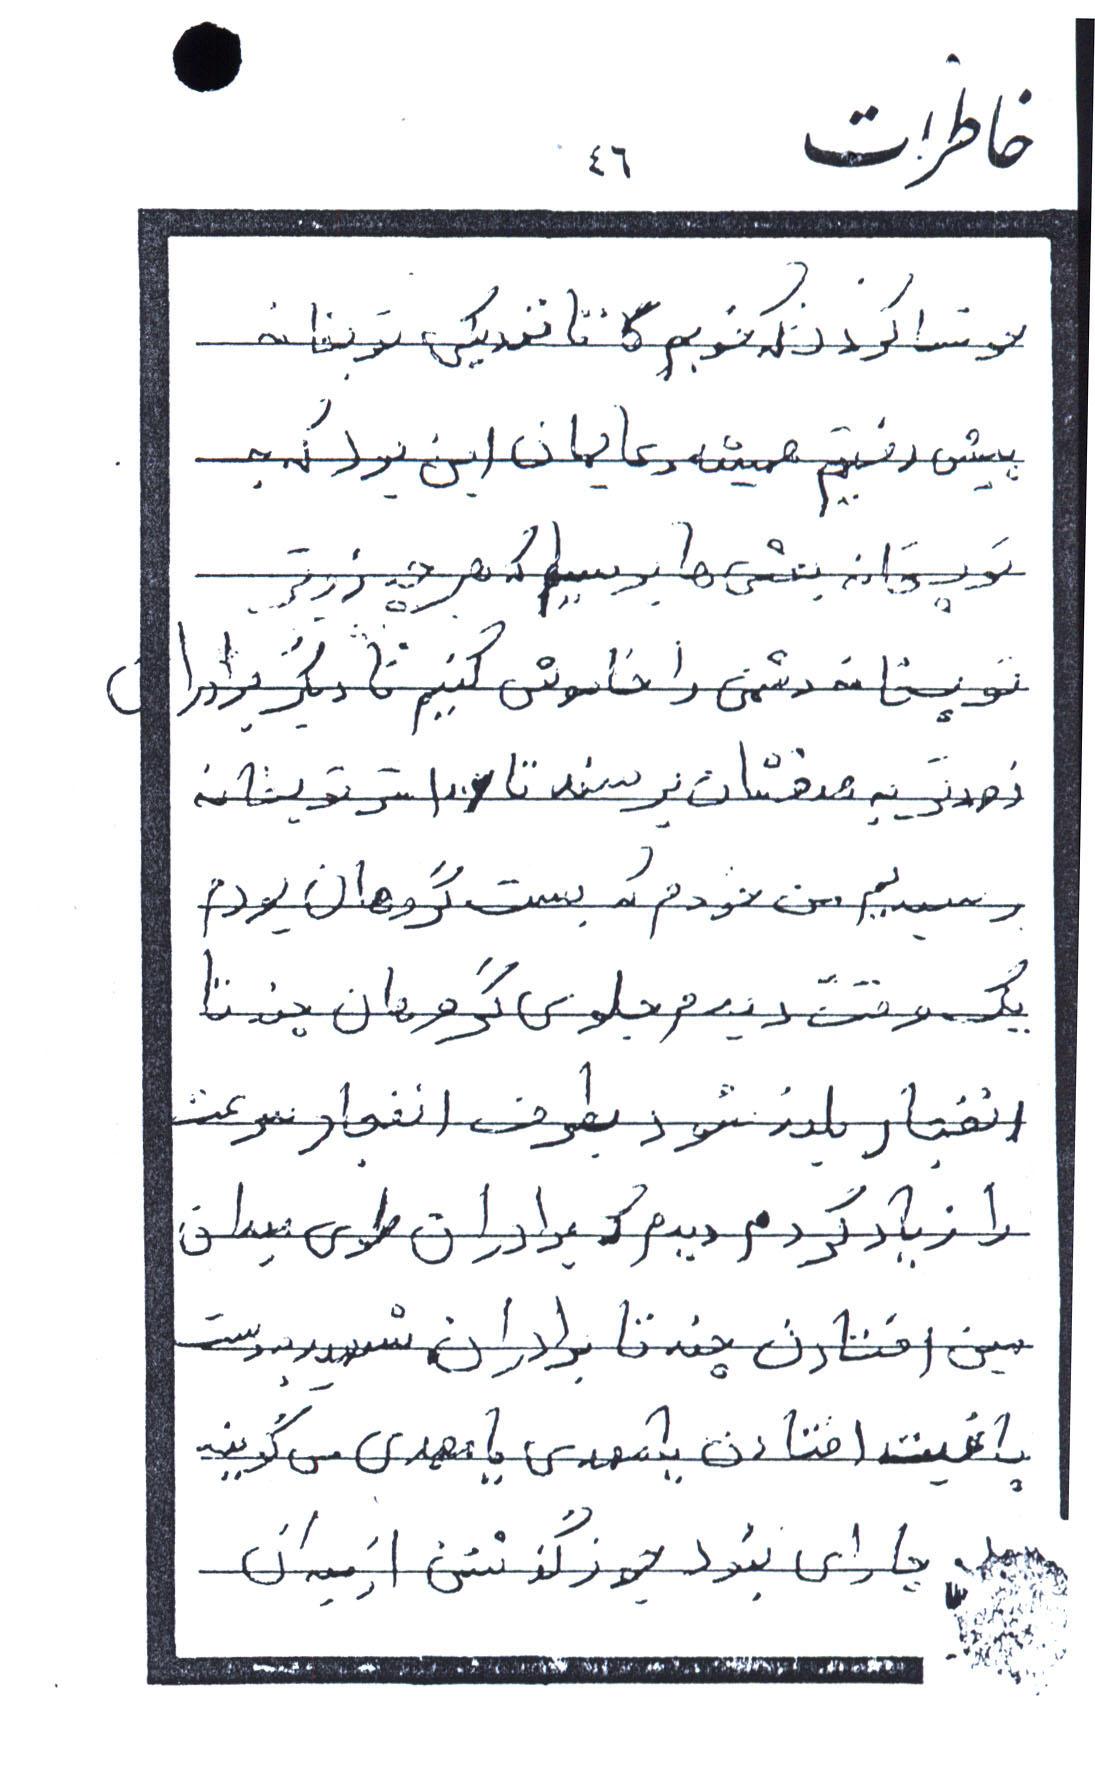 خاطرات
٤٦
خوشا کردند که خوبم تا نزدیکی توپخانه
پیش رفتیم همیشه دعایمان این بود که به
توپخانه بعثی ها برسیم که هر چه زودتر
توپخانه دشمن را خاموش کنیم تا دیگر برادران
زودتر به هدفشان برسند تا توپخانه
رسیدیم من خودم که بست گروهان بودم
یک وقت دیدم جلوی گروهان چند تا
انفجار بلند شود بطرف انفجار سرعت
را زیاد کردم دیدم که برادران طوی میدان
مین افتادن چند تا برادران شهید بدست
پا افتادن یا مهدی یا مهدی می گویند
چارای نبود جوز گذشتن از میدان